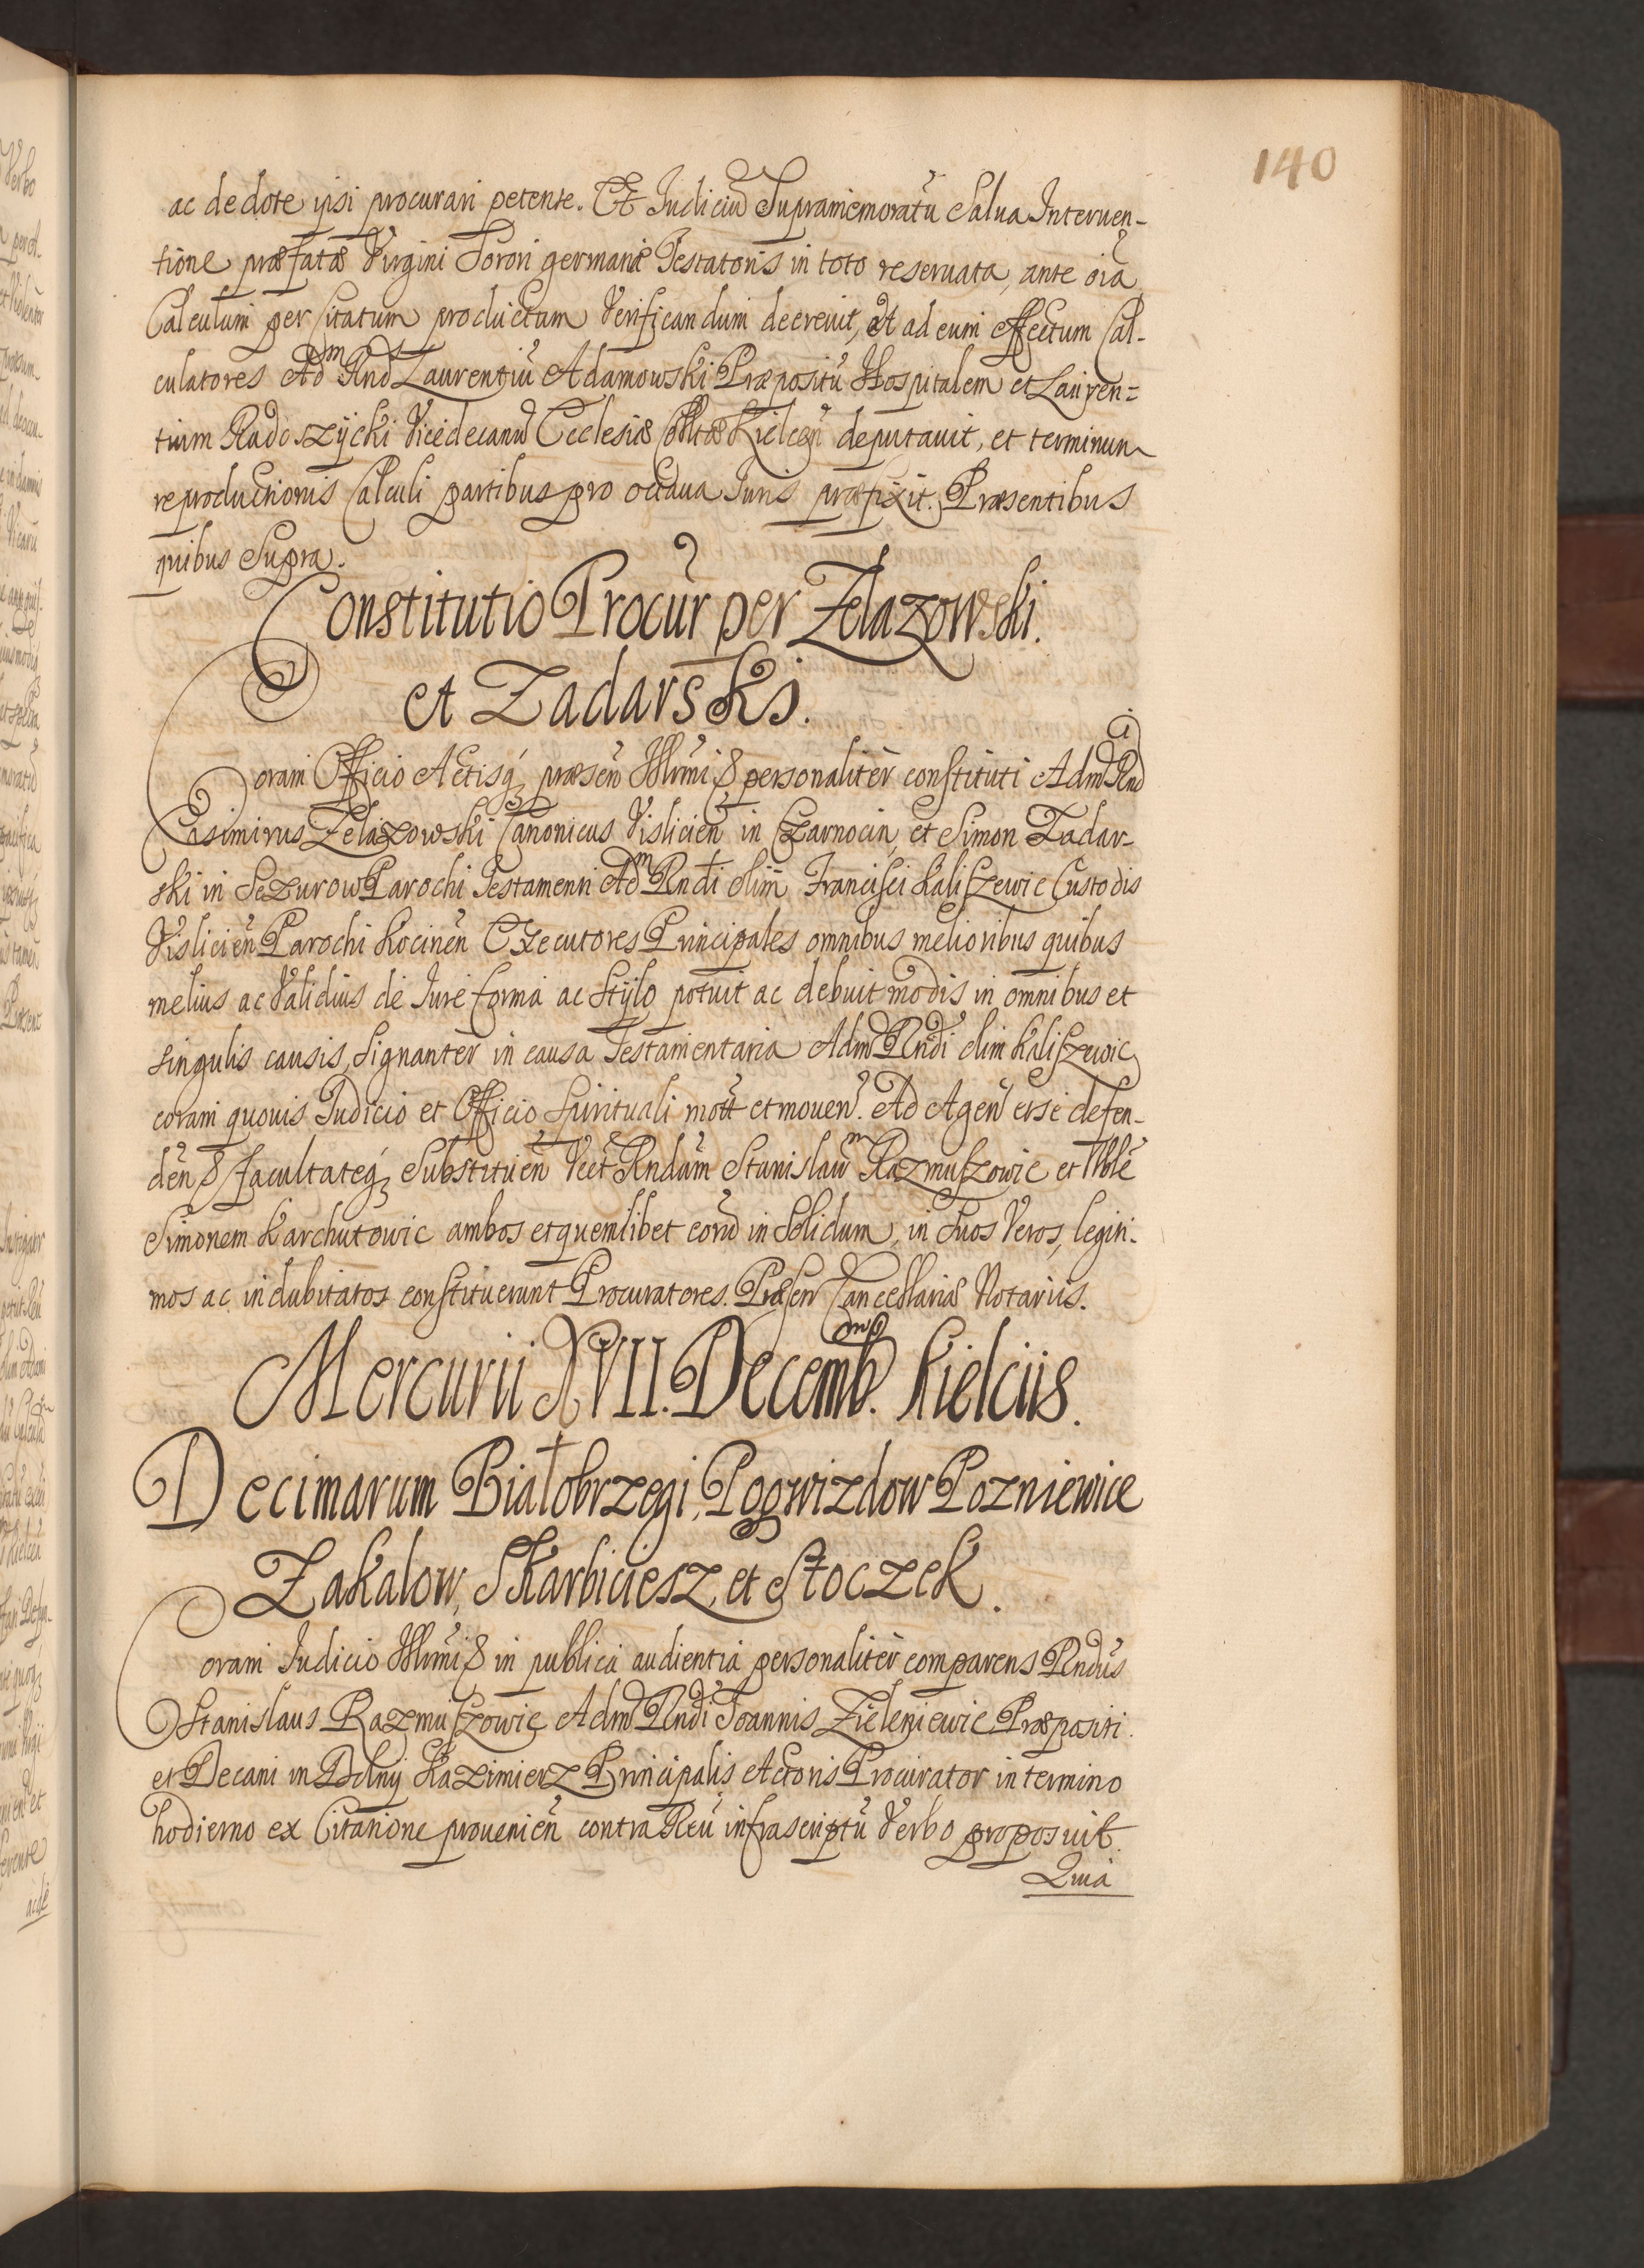 140
ac de dote ipsi procurari petente. Et Judiciũ Supramemoratũ Salua Interuen-
tione præfatæ Virgini Sorori germanæ Testatoris in toto reseruata, ante oĩa
Calculum per Citatum productum Verificandum decreuit, et ad eum effectum Cal-
culatores Adm Rnd Laurentiũ Adamowski Præpositũ Hospitalem et Lauren=
tium Radoszÿcki Vicedecanũ Ecclesiæ Colltæ Kielceñ deputauit, et terminum
reproductionis Calculi partibus pro octaua Juris præfixit. Præsentibus
quibus Supra.
Constitutio Procur̃ per Zelazowski.
et Zadarski.
Coram Officio Actisq́ꝫ præseñ Illrmi & personaliter constituti Adm Rndi
Casimirus Zelazowski Canonicus Vislicieñ in Czarnocin, et Simon Zadar-
ski in Sczurow Parochi Testamenti Adm Rndi olim Francisci Kaliszewic Custodis
Visliciẽn Parochi Kocinẽn Executores Principales omnibus melioribus quibus
melius ac Validius de Jure forma ac Stÿlo potuit ac debuit modis in omnibus et
singulis causis, Signanter in causa Testamentaria Adm Rndi olim Kaliszewic
coram quouis Judicio et Officio Spirituali mott et mouen̉. Ad Agen̉ erse defen-
den̉ & facultateq́ꝫ Substituen̉ Vert Rndum Stanislaum Razmuszowic et Nblẻ
Simonem Karchutowic ambos et quemlibet eorũ in Solidum, in Suos Veros, legiti-
mos ac indubitatos constituerunt Procuratores. Præsen̉ Cancellariæ Notariis.
Mercurii XVII. Decemb. Kielciis.
Decimarum Białobrzegi, Pogwizdow Pozniewice
Zakalow, Skarbiciesz, et Stoczek.
Coram Judicio Illrmi & in publica audientia personaliter comparens Rndus
Stanislaus Razmuszowic Adm Rndi Joannis Zieleniewic Præpositi
et Decani in Dolny Kazimierz Principalis Actoris Procurator in termino
hodierno ex Citatione prouenieñ contra Reũ infrascriptũ Verbo proposuit.
Quia